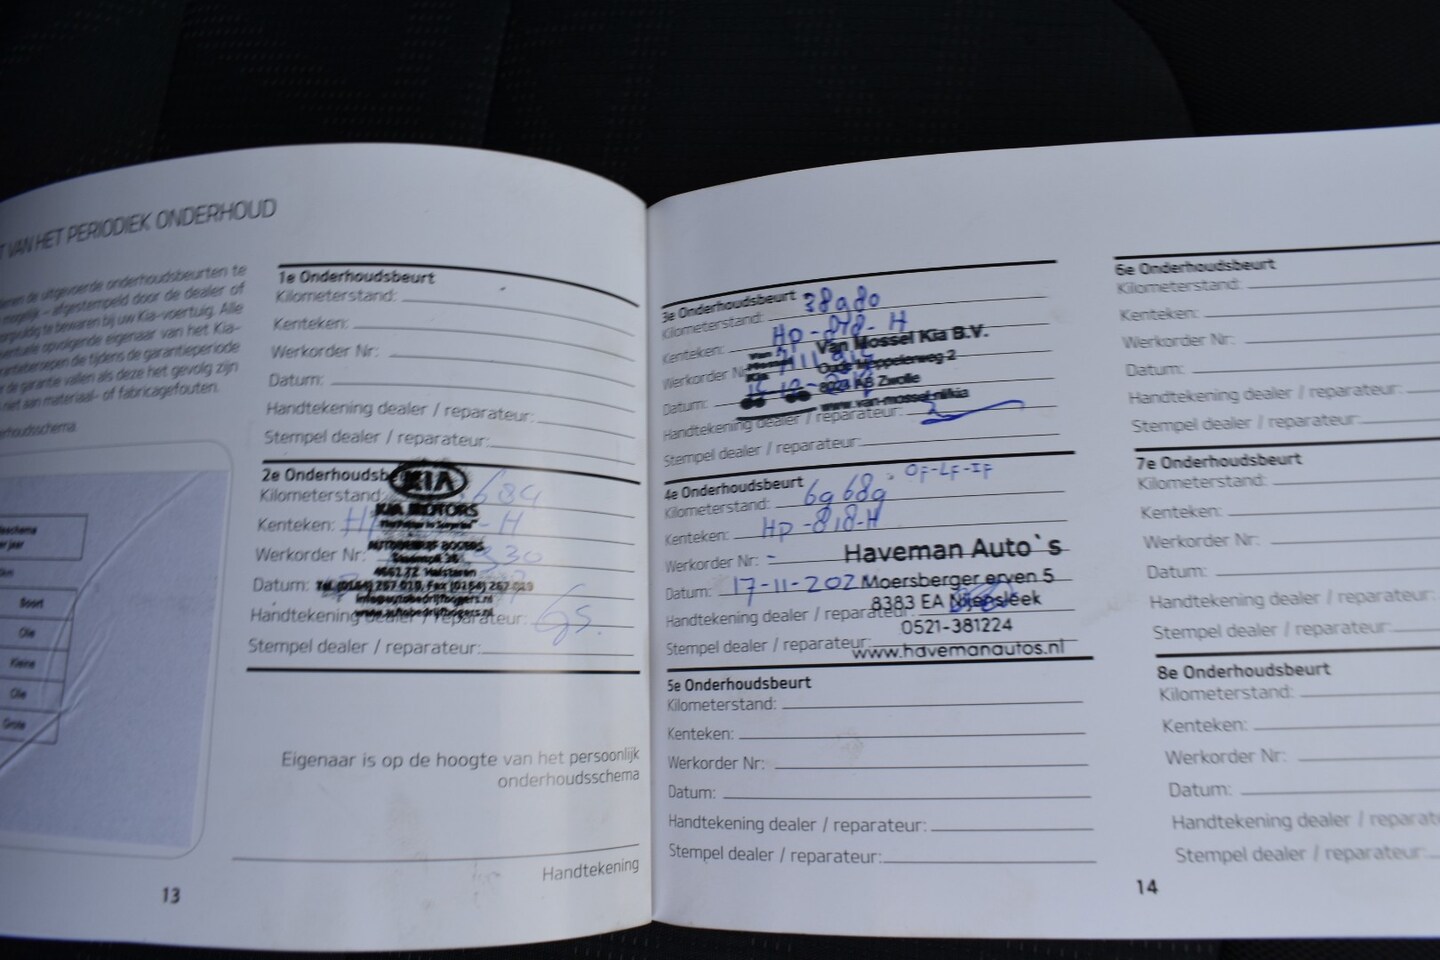 VAN HET PERIODIEK ONDERHOUD
de uitgevoerde onderhoudsbeurten te
mogelijk – afgestempeld door de dealer of
te bewaren bij uw Kia-voertuig. Alle
opvolgende eigenaar van het Kia-
tijdens de garantieperiode
de garantie vallen als deze het gevolg zijn
niet aan materiaal- of fabricagefouten.
Beurt
Olie
Kleine
Olie
Grote
1e Onderhoudsbeurt
Kilometerstand:
Kenteken:
Werkorder Nr:
Datum:
Handtekening dealer / reparateur:
Stempel dealer / reparateur:
2e Onderhoudsb
Kilometerstand: 684
Kenteken: H - H
Werkorder Nr: 330
Datum:
Handtekening dealer / reparateur:
Stempel dealer / reparateur:
KIA
KIA MOTORS
www.autobedrijfbogers.nl
Eigenaar is op de hoogte van het persoonlijk
onderhoudsschema
Handtekening
13
3e Onderhoudsbeurt
Kilometerstand: 38980
Kenteken: HP-818-H
Werkorder Nr
Datum:
Handtekening dealer / reparateur:
Stempel dealer / reparateur:
Van Mossel Kia B.V.
Oude Meppelerweg 2
Zwolle
www.van-mossel.nl/kia
4e Onderhoudsbeurt OF-LF-IF
Kilometerstand: 69689
Kenteken: HP-818-H
Werkorder Nr: -
Datum: 17-11-202
Handtekening dealer / reparateur:
Stempel dealer / reparateur:
Haveman Auto`s
Moersberger erven 5
8383 EA Nijensleek
0521-381224
www.havemanautos.nl
5e Onderhoudsbeurt
Kilometerstand:
Kenteken:
Werkorder Nr:
Datum:
Handtekening dealer / reparateur:
Stempel dealer / reparateur:
6e Onderhoudsbeurt
Kilometerstand:
Kenteken:
Werkorder Nr:
Datum:
Handtekening dealer / reparateur:
Stempel dealer / reparateur:
7e Onderhoudsbeurt
Kilometerstand:
Kenteken:
Werkorder Nr:
Datum:
Handtekening dealer / reparateur:
Stempel dealer / reparateur:
8e Onderhoudsbeurt
Kilometerstand:
Kenteken:
Werkorder Nr:
Datum:
Handtekening dealer / reparat
Stempel dealer / reparateur:
14